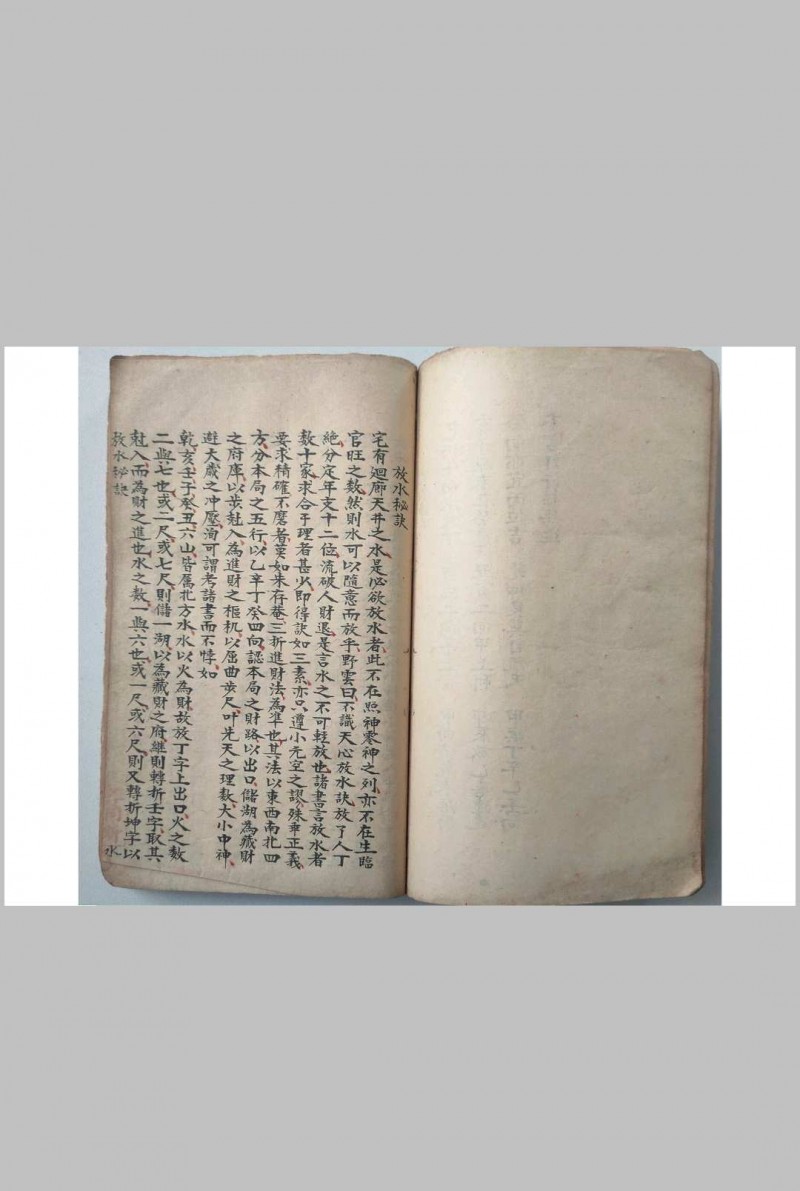 放水秘訣
宅有迴廊天井之水是必欲放水者此不在照神零神之列亦不在生臨
官旺之数然則水可以隨意而放乎野雲曰不識天心放水訣放了人丁
絶分定年支十二位流破人財退是言水之不可輕放也諸書言放水者
数十家求合于理者甚少即得訣如三素亦只遵小元空之謬殊乖正義
要求精確不磨者莫如朱存菴三折進財法為準也其法以東西南北四
方分本局之五行以乙辛丁癸四向認本局之財路以出口儲湖為藏財
之府庫以步尅入為進財之樞机以屈曲步尺叶先天之理数大小中神
遊大歳之冲壓洵可謂考諸書而不悖如
乾亥壬子癸丑六山皆属北方水水以火為財故放丁字上出口火之数
二與七也或二尺或七尺則儲一湖以為藏財之府継則轉折壬字取其
尅入而為財之進也水之数一與六也或一尺或六尺則又轉折坤字以
放水秘訣
水